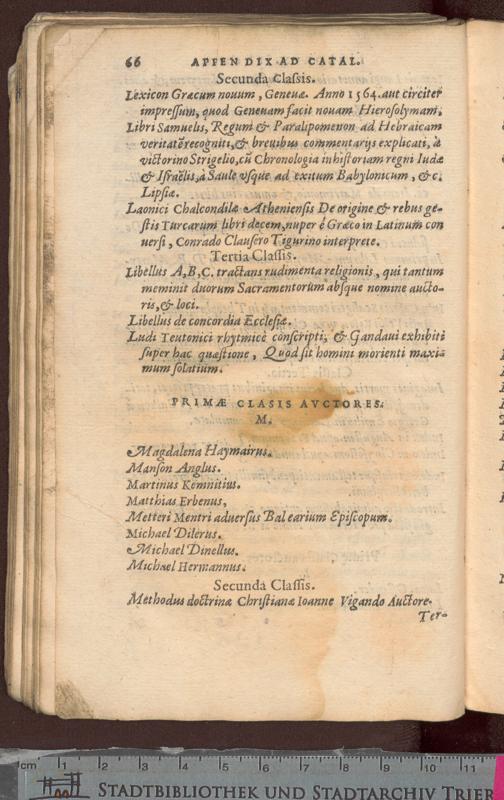 66 APPENDIX AD CATAL.
Secunda Classis.
Lexicon Græcum nouum, Geneuæ. Anno 1564. aut circiter
impressum, quod Geneuam facit nouam Hierosolymam.
Libri Samuelis, Regum & Paralipomenon ad Hebraicam
veritatē recogniti, & breuibus commentarijs explicati, à
victorino Strigelio, cū Chronologia in historiam regni Iudæ
& Israëlis, à Saule vsque ad exitum Babylonicum, &c.
Lipsiæ.
Laonici Chalcondilæ Atheniensis De origine & rebus ge-
stis Turcarum libri decem, nuper è Græco in Latinum con
uersi, Conrado Clausero Tigurino interprete.
Tertia Classis.
Libellus A, B, C. tractans rudimenta religionis, qui tantum
meminit duorum Sacramentorum absque nomine aucto-
ris, & loci.
Libellus de concordia Ecclesiæ.
Ludi Teutonici rhytmicè conscripti, & Gandaui exhibiti
super hac quæstione, Quod sit homini morienti maxi-
mum solatium.
PRIMÆ CLASIS AVCTORES.
M.
Magdalena Haymairus.
Manson Anglus.
Martinus Kemnitius.
Matthias Erbenus,
Metteri Mentri aduersus Balearium Episcopum.
Michael Dilerus.
Michael Dinellus.
Michael Hermannus.
Secunda Classis.
Methodus doctrinæ Christianæ Ioanne Vigando Auctore.
Ter-
cm 1 2 3 4 5 6 7 8 9 10 11
STADTBIBLIOTHEK UND STADTARCHIV TRIER